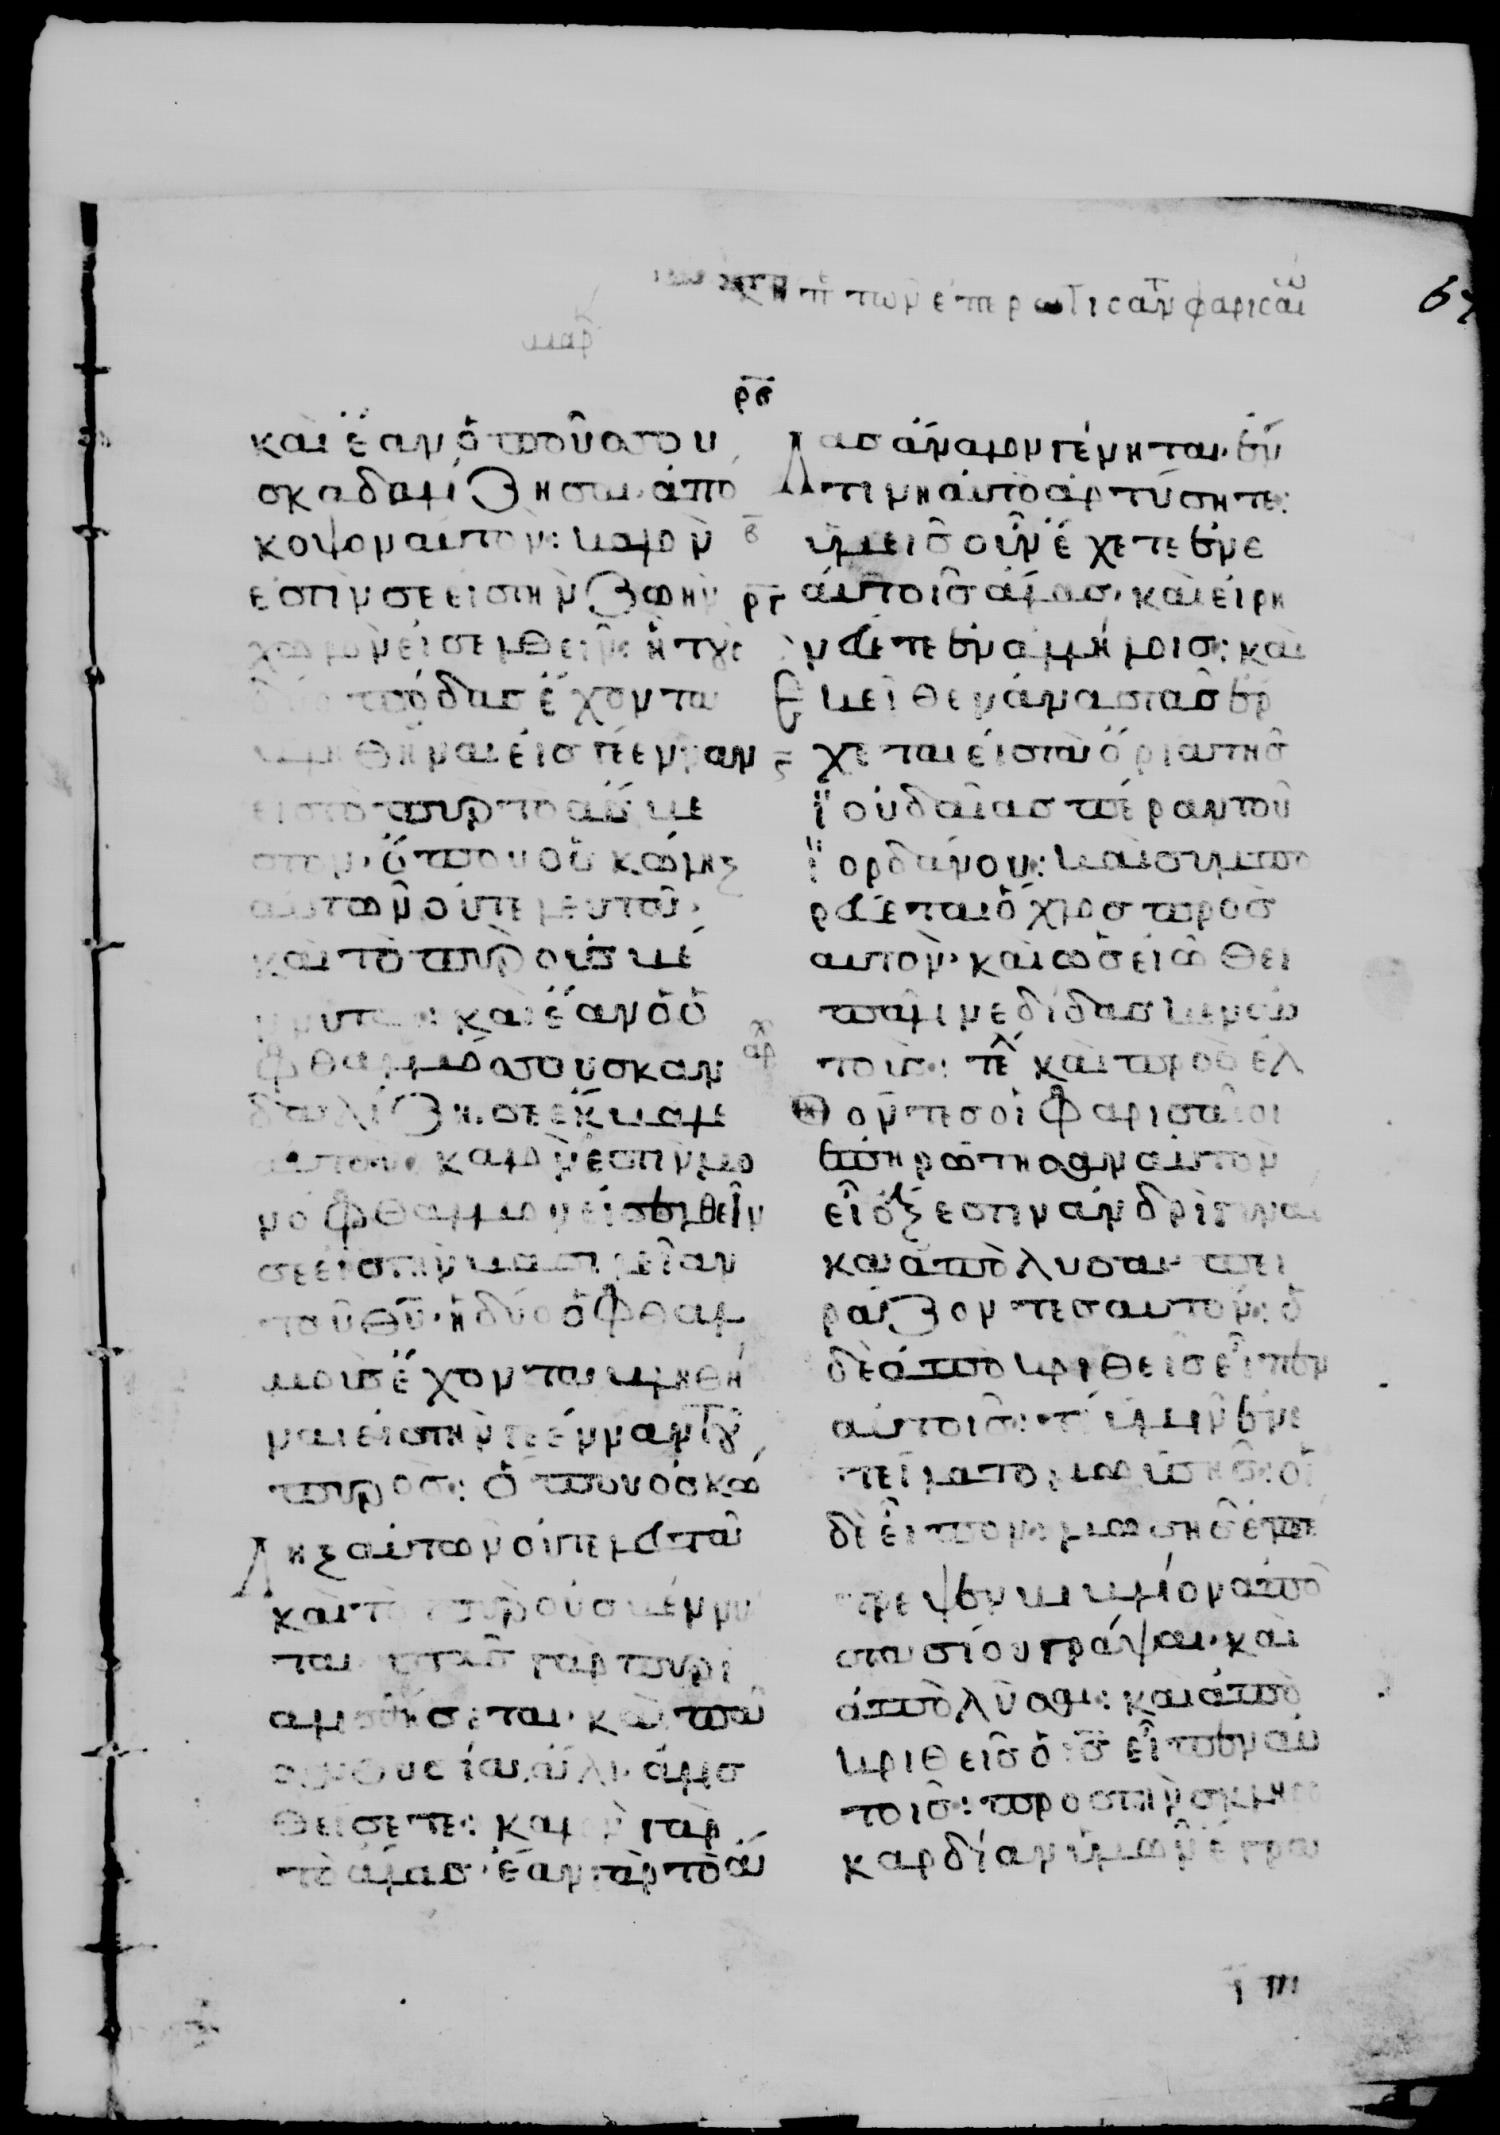 τῶν ἐπερωτισαν φαρισαι
67
μαρ
ρβ
και ἐὰν ὁ ποῦσ σου
σκαδαλίζη σαι ἀπο
κοψον αυτον: καλὸν
ἐστιν σε εισ τὴν ζωὴν
χωλὸν εἰσελθεῖν: ἢ τοὺσ
δύο πόδασ ἔχοντα
βληθῆναι εἰσ γέενναν
εισ τὸ πῦρ τὸ ἄσβε
στον· ὅπου ὁ σκώληξ
αυτῶν οὐ τελευτᾶ·
και τὸ πῦρ οὐ σβέ
ννυται: και ἐὰν ὁ ὀ
φθαλμόσ σου σκαν
δαλίζη σε ἔκβαλε
αυτον: καλὸν ἐστιν μο
νόφθαλμον εἰσελθεῖν
σε εἰσ τὴν βασιλείαν
τοῦ θῦ· ἢ δύο ὀφθαλ
μουσ ἔχοντα βληθῆ
ναι εἰσ τὴν γέενναν τοῦ
πυρόσ: ὅπου ὁ σκώ
ληξ αὐτῶν οὐ τελευτᾶ
και τὸ πῦρ οὐ σβέννυ
ται πᾶσ γὰρ πυρὶ
αλισθήσεται· καὶ πᾶσα
θυσία ἁλὶ ἁλισ
θήσεται: καλὸν γὰρ
τὸ ἅλασ· ἐὰν γὰρ τὸ ἅ
λασ ἄναλον γένηται· ἐν
τίνι αὐτὸ ἀρτύσητε:
β
ὑμεῖσ οὖν ἔχετε ἐν ἑ
ργ
αυτοῖσ ἅλασ· καὶ εἰρη
νεύετε ἐν ἀλλήλοισ: καὶ
ἐκεῖθεν ἀναστὰσ ἔρ
χεται εἰσ τὰ ὅρια τῆσ
ϊουδαίασ πέραν τοῦ
ϊορδάνου: καὶ συμπο
ρεύεται ὄχλοσ προσ
αυτὸν· καὶ ὡσ εἰώθει
πάλιν ἐδίδασκεν αὐ
αρ
τοισ: τε καὶ προσελ
θόντεσ οἱ φαρισαῖοι
ἐπηρώτησαν αὐτὸν
εἰ ἔξεστιν ἀνδρὶ γυναι
κα ἀπολῦσαι πει
ράζοντεσ αυτόν: ὁ
δὲ ἀποκριθεὶσ εἶπεν
αὐτοῖσ: τί ὑμῖν ἐνε
τείλατο μωϋσῆσ: οἱ
δὲ εἶπον: μωσησ ἐπέ
τρεψεν βιβλίον ἀπο
στασίου γράψαι· καὶ
ἀπολῦσαι: καὶ ἀπο
κριθεὶσ ὁ ισ εἶπεν αὐ
τοῖσ: προσ τὴν σκληρο
καρδίαν ὑμῶν ἔγρα